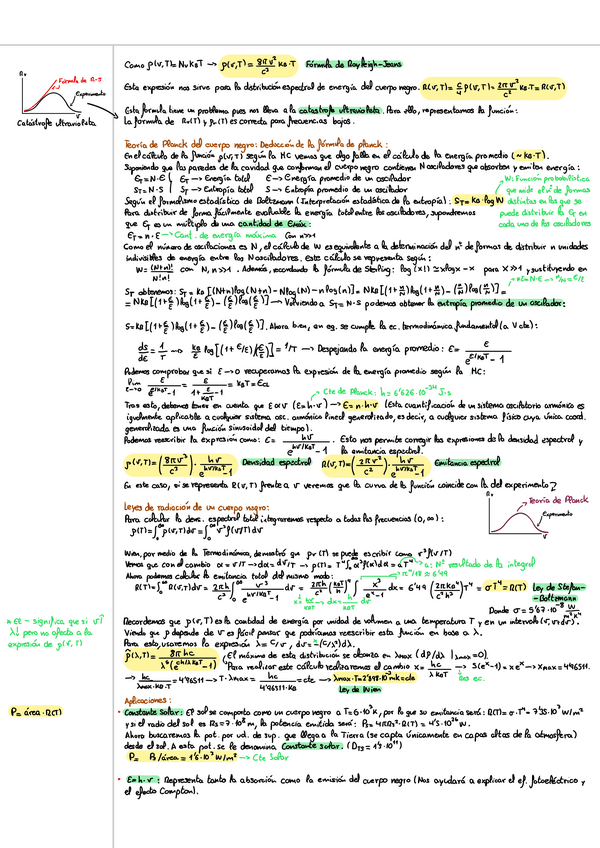 Como ρ(ν,T)=Nν KBT → ρ(ν,T) = 8πν²/c³ KB·T Fórmula de Rayleigh-Jeans
Rν
Fórmula de R-J
Experimento
ν
Catástrofe ultravioleta
Esta expresión nos sirve para la distribución espectral de energía del cuerpo negro. R(ν,T) = c/4 ρ(ν,T) = 2πν²/c² KB·T = R(ν,T)
Esta fórmula tiene un problema pues nos lleva a la catastrofe ultravioleta. Para ello, representamos la función:
La fórmula de Rν(T) y ρν(T) es correcta para frecuencias bajas.
Teoría de Planck del cuerpo negro: Deducción de la fórmula de planck:
En el cálculo de la función ρ(ν,T) según la MC vemos que algo falla en el cálculo de la energía promedio (~ KB·T).
Suponiendo que las paredes de la cavidad que conforman el cuerpo negro contienen N osciladores que absorben y emiten energía:
ET = N·E ET → Energía total E → Energía promedio de un oscilador
ST = N·S ST → Entropía total S → Entropía promedio de un oscilador
Según el formalismo estadístico de Boltzmann (Interpretación estadística de la entropía): ST = KB·log W
W: Función probabilística que mide el nº de formas distintas en las que se puede distribuir la ET en cada uno de los osciladores
Para distribuir de forma fácilmente evaluable la energía total entre los osciladores, supondremos
que ET es un múltiplo de una cantidad de Emáx:
ET = n·ε → Cant. de energía máxima con n>>1
Como el número de oscilaciones es N, el cálculo de W es equivalente a la determinación del nº de formas de distribuir n unidades
indivisibles de energía entre los N osciladores. Este cálculo se representa según:
W = (N+n)!/N!n! con N, n>>1. Además, recordando la fórmula de Sterling: log(x!) ≃ xlogx − x para x>>1 y sustituyendo en
ST obtenemos: ST = KB [(N+n)log(N+n) − Nlog(N) − nlog(n)] = NKB [(1+n/N)log(1+n/N) − (n/N)log(n/N)] =
= NKB [(1+E/ε)log(1+E/ε) − (E/ε)log(E/ε)] → Volviendo a ST = N·S podemos obtener la entropía promedio de un oscilador:
S = KB [(1+E/ε)log(1+E/ε) − (E/ε)log(E/ε)]. Ahora bien, en eq. se cumple la ec. termodinámica fundamental (a V cte):
dS/dE = 1/T → KB/ε log[(1+E/ε)/(E/ε)] = 1/T → Despejando la energía promedio: E = ε/(e^(ε/KBT) − 1)
Podemos comprobar que si ε→0 recuperamos la expresión de la energía promedio según la MC:
Cte de Planck: h = 6'626·10⁻³⁴ J·s
Tras esto, debemos tener en cuenta que ε∝ν (ε=h·ν) → E = n·h·ν (Esta cuantificación de un sistema oscilatorio armónico es
igualmente aplicable a cualquier sistema osc. armónico lineal generalizado, es decir, a cualquier sistema físico cuya única coord.
generalizada es una función sinusoidal del tiempo).
Podemos reescribir la expresión como: E = hν/(e^(hν/KBT) − 1). Esto nos permite corregir las expresiones de la densidad espectral y
la emitancia espectral.
ρ(ν,T) = (8πν²/c³)·hν/(e^(hν/KBT) − 1) Densidad espectral R(ν,T) = (2πν²/c²)·hν/(e^(hν/KBT) − 1) Emitancia espectral
En este caso, si se representa R(ν,T) frente a ν veremos que la curva de la función coincide con la del experimento
Rν
Teoría de Planck
Experimento
ν
Leyes de radiación de un cuerpo negro:
Para calcular la dens. espectral total integraremos respecto a todas las frecuencias (0,∞):
ρ(T) = ∫₀^∞ ρ(ν,T)dν = ∫₀^∞ ν³f(ν/T)dν
Wien, por medio de la Termodinámica, demostró que ρν(T) se puede escribir como ν³f(ν/T)
Vemos que con el cambio α = ν/T → dα = dν/T → ρ(T) = T⁴∫₀^∞ α³f(α)dα = aT⁴ → a: Nº resultado de la integral
Ahora podemos calcular la emitancia total del mismo modo: π⁴/15 ≃ 6'49
R(T) = ∫₀^∞ R(ν,T)dν = 2πh/c² ∫₀^∞ ν³/(e^(hν/KBT) − 1) dν = 2πh/c² (KBT/h)⁴ ∫ x³/(eˣ−1) dx = 6'49 (2πKB⁴/c²h³) T⁴ = σT⁴ = R(T) Ley de Stefan-Boltzmann
x = hν/KBT → dx = h/KBT dν
Donde σ = 5'67·10⁻⁸ W/m²K⁴
Recordemos que ρ(ν,T) es la cantidad de energía por unidad de volumen a una temperatura T y en un intervalo (ν, ν+dν).
Viendo que ρ depende de ν es fácil pensar que podríamos reescribir esta función en base a λ.
Para esto, usaremos la expresión λ = c/ν, dν = −(c/λ²)dλ.
* El − significa que si ν↑ λ↓ pero no afecta a la expresión de ρ(ν,T)
ρ(λ,T) = 8πhc/λ⁵(e^(ch/λKBT) − 1). El máximo de esta distribución se alcanza en λmax (dρ/dλ|λmax = 0).
Para realizar este cálculo realizaremos el cambio x = hc/λKBT → 5(eˣ−1) = xeˣ → xmax = 4'96511.
→ hc/λmax·KB·T = 4'96511 → T·λmax = hc/4'96511·KB = cte → λmax·T = 2'898·10⁻³ mk = cte
Ley de Wien
Aplicaciones:
P = área·R(T)
· Constante Solar: El sol se comporta como un cuerpo negro a T = 6·10³K, por lo que su emitancia será: R(T) = σ·T⁴ = 7'35·10⁷ W/m²
y si el radio del sol es Rs = 7·10⁸ m, la potencia emitida será: Ps = 4πRs²·R(T) = 4'5·10²⁶ W.
Ahora buscaremos la pot. por ud. de sup. que llega a la Tierra (se capta únicamente en capas altas de la atmosfera)
desde el sol. A esta pot. se le denomina Constante Solar. (DTS = 1'5·10¹¹)
P = Ps/área = 1'6·10³ W/m² → Cte Solar
· E=h·ν: Representa tanto la absorción como la emisión del cuerpo negro (Nos ayudará a explicar el ef. fotoeléctrico y
el efecto Compton).